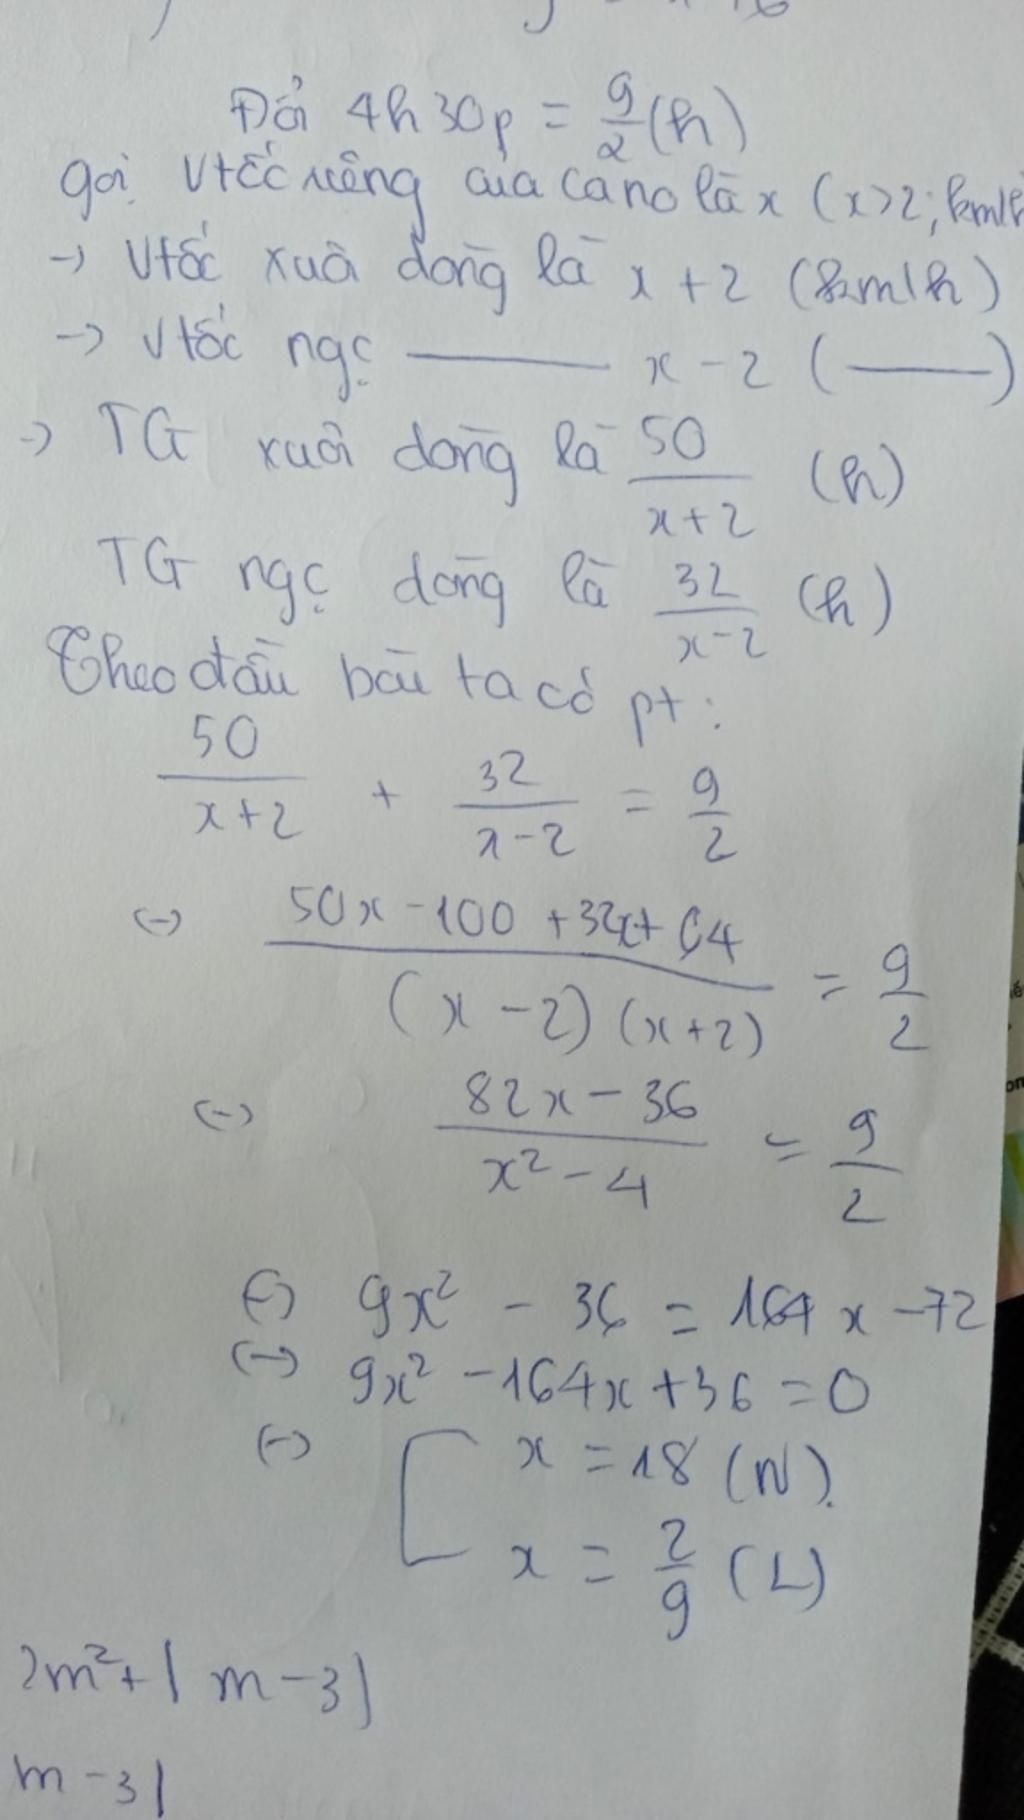 Đổi 4h30p = 9/2 (h)
gọi vtốc riêng của cano là x (x>2; km/h
→ vtốc xuôi dòng là x + 2 (km/h)
→ vtốc ngc ——— x - 2 (———)
→ TG xuôi dòng là 50/(x+2) (h)
TG ngc dòng là 32/(x-2) (h)
Theo đầu bài ta có pt:
50/(x+2) + 32/(x-2) = 9/2
(-) (50x - 100 + 32x + 64)/((x - 2)(x+2)) = 9/2
(-) (82x - 36)/(x² - 4) = 9/2
(-) 9x² - 36 = 164x - 72
(-) 9x² - 164x + 36 = 0
(-) [ x = 18 (N).
x = 2/9 (L)
2m² + | m - 3 |
m - 3 |